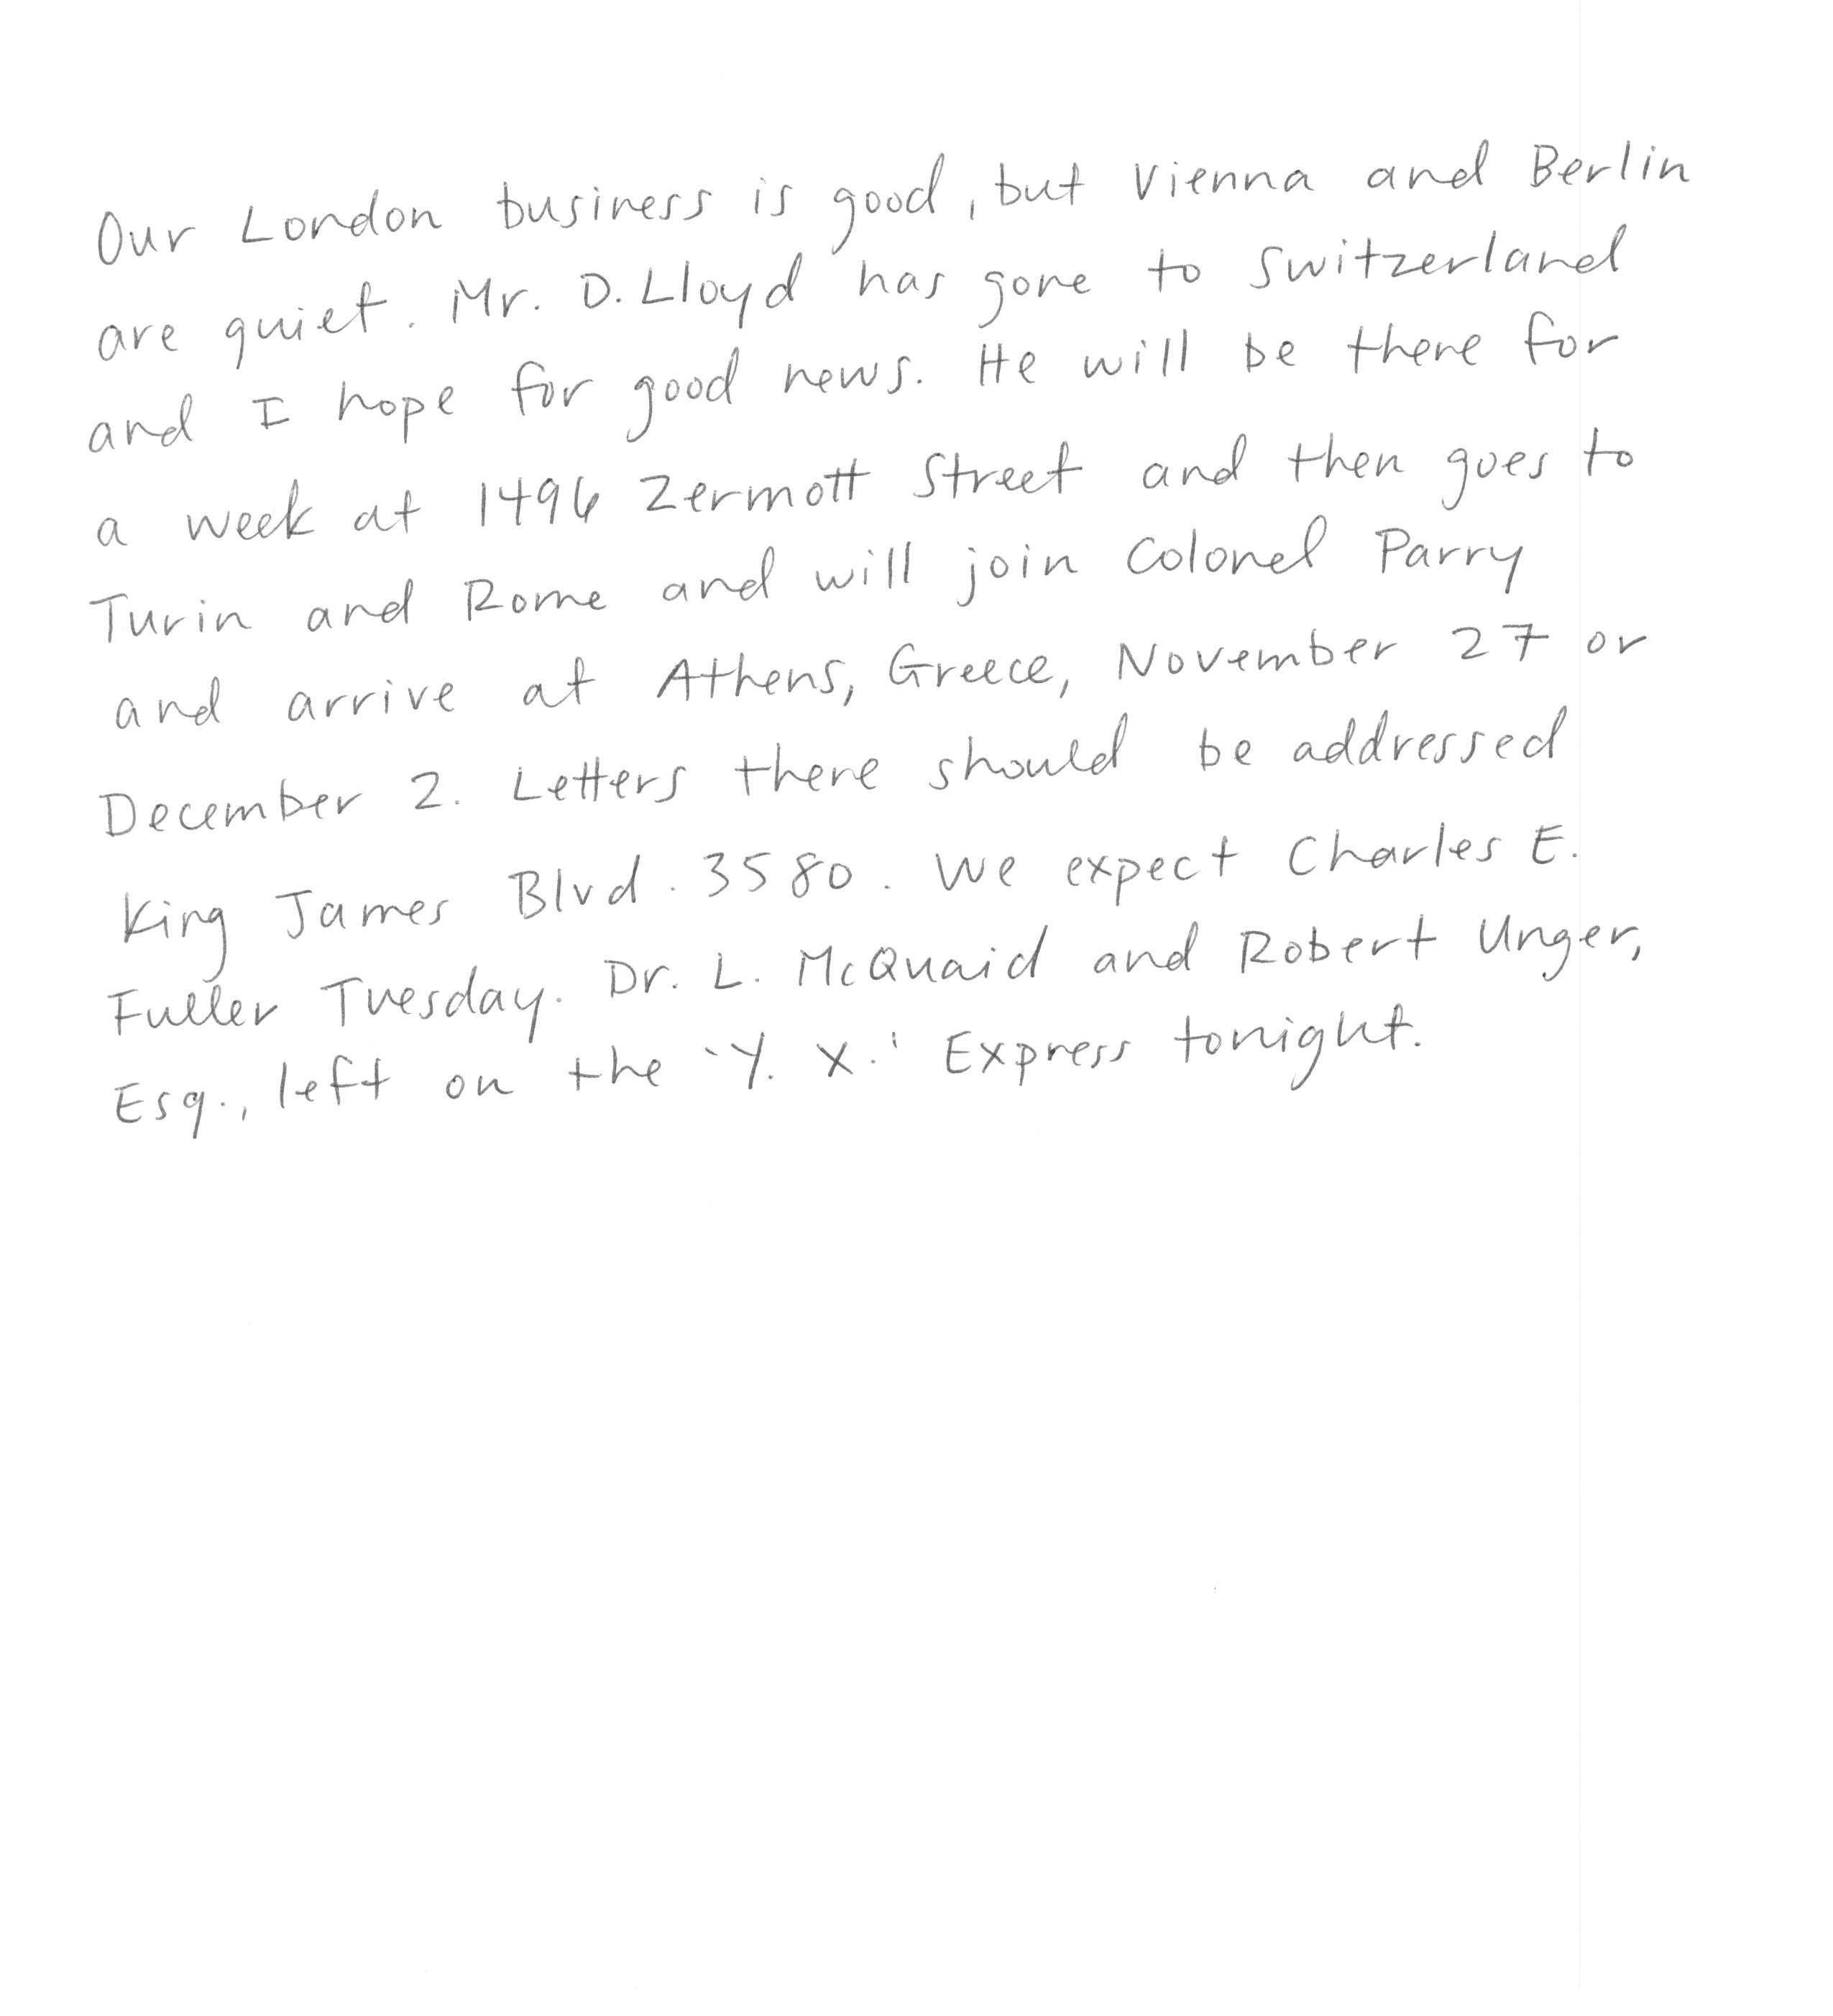 Our London business is good, but Vienna and Berlin
are quiet. Mr. D. Lloyd has gone to Switzerland
and I hope for good news. He will be there for
a week at 1496 Zermott Street and then goes to
Turin and Rome and will join Colonel Parry
and arrive at Athens, Greece, November 27 or
December 2. Letters there should be addressed
King James Blvd. 3580. We expect Charles E.
Fuller Tuesday. Dr. L. McQuaid and Robert Unger,
Esq., left on the 'Y. X.' Express tonight.